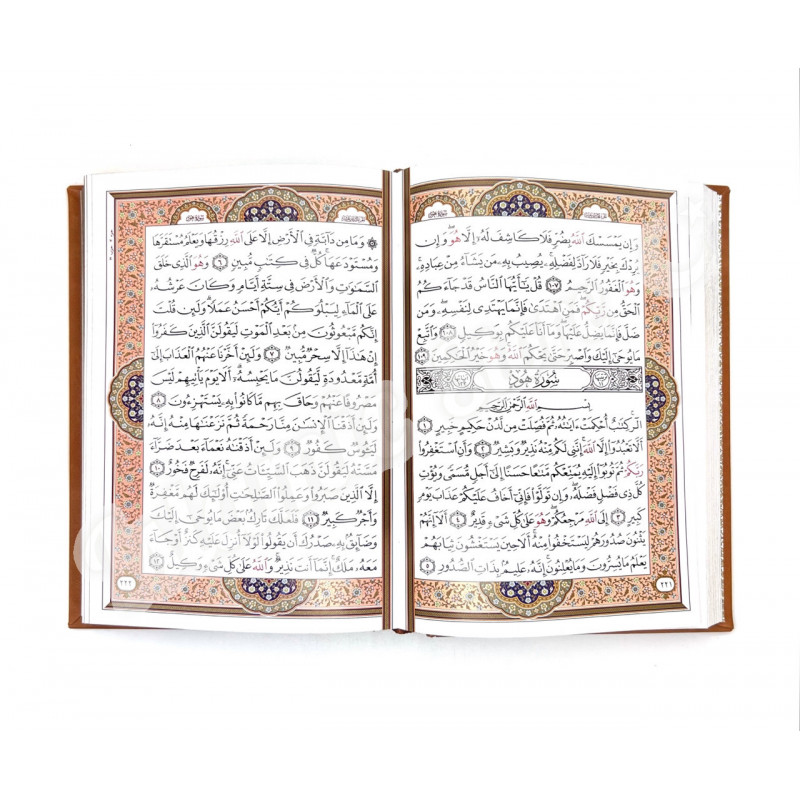 وَإِن يَمْسَسْكَ اللَّهُ بِضُرٍّ فَلَا كَاشِفَ لَهُ إِلَّا هُوَ وَإِن
يُرِدْكَ بِخَيْرٍ فَلَا رَادَّ لِفَضْلِهِ يُصِيبُ بِهِ مَن يَشَاءُ مِنْ عِبَادِهِ
وَهُوَ الْغَفُورُ الرَّحِيمُ ١٠٧ قُلْ يَا أَيُّهَا النَّاسُ قَدْ جَاءَكُمُ
الْحَقُّ مِن رَّبِّكُمْ فَمَنِ اهْتَدَى فَإِنَّمَا يَهْتَدِي لِنَفْسِهِ وَمَن
ضَلَّ فَإِنَّمَا يَضِلُّ عَلَيْهَا وَمَا أَنَا عَلَيْكُم بِوَكِيلٍ ١٠٨ وَاتَّبِعْ
مَا يُوحَى إِلَيْكَ وَاصْبِرْ حَتَّى يَحْكُمَ اللَّهُ وَهُوَ خَيْرُ الْحَاكِمِينَ ١٠٩
سُورَةُ هُودٍ
بِسْمِ اللَّهِ الرَّحْمَٰنِ الرَّحِيمِ
الٓر كِتَابٌ أُحْكِمَتْ آيَاتُهُ ثُمَّ فُصِّلَتْ مِن لَّدُنْ حَكِيمٍ خَبِيرٍ ١
أَلَّا تَعْبُدُوا إِلَّا اللَّهَ إِنَّنِي لَكُم مِّنْهُ نَذِيرٌ وَبَشِيرٌ ٢ وَأَنِ اسْتَغْفِرُوا
رَبَّكُمْ ثُمَّ تُوبُوا إِلَيْهِ يُمَتِّعْكُم مَّتَاعًا حَسَنًا إِلَى أَجَلٍ مُّسَمًّى وَيُؤْتِ
كُلَّ ذِي فَضْلٍ فَضْلَهُ وَإِن تَوَلَّوْا فَإِنِّي أَخَافُ عَلَيْكُمْ عَذَابَ يَوْمٍ
كَبِيرٍ ٣ إِلَى اللَّهِ مَرْجِعُكُمْ وَهُوَ عَلَى كُلِّ شَيْءٍ قَدِيرٌ ٤ أَلَا إِنَّهُمْ
يَثْنُونَ صُدُورَهُمْ لِيَسْتَخْفُوا مِنْهُ أَلَا حِينَ يَسْتَغْشُونَ ثِيَابَهُمْ
يَعْلَمُ مَا يُسِرُّونَ وَمَا يُعْلِنُونَ إِنَّهُ عَلِيمٌ بِذَاتِ الصُّدُورِ ٥
٢٢١
وَمَا مِن دَابَّةٍ فِي الْأَرْضِ إِلَّا عَلَى اللَّهِ رِزْقُهَا وَيَعْلَمُ مُسْتَقَرَّهَا
وَمُسْتَوْدَعَهَا كُلٌّ فِي كِتَابٍ مُّبِينٍ ٦ وَهُوَ الَّذِي خَلَقَ
السَّمَاوَاتِ وَالْأَرْضَ فِي سِتَّةِ أَيَّامٍ وَكَانَ عَرْشُهُ
عَلَى الْمَاءِ لِيَبْلُوَكُمْ أَيُّكُمْ أَحْسَنُ عَمَلًا وَلَئِن قُلْتَ
إِنَّكُم مَّبْعُوثُونَ مِن بَعْدِ الْمَوْتِ لَيَقُولَنَّ الَّذِينَ كَفَرُوا
إِنْ هَذَا إِلَّا سِحْرٌ مُّبِينٌ ٧ وَلَئِنْ أَخَّرْنَا عَنْهُمُ الْعَذَابَ إِلَى
أُمَّةٍ مَّعْدُودَةٍ لَّيَقُولُنَّ مَا يَحْبِسُهُ أَلَا يَوْمَ يَأْتِيهِمْ لَيْسَ
مَصْرُوفًا عَنْهُمْ وَحَاقَ بِهِم مَّا كَانُوا بِهِ يَسْتَهْزِءُونَ ٨
وَلَئِنْ أَذَقْنَا الْإِنسَانَ مِنَّا رَحْمَةً ثُمَّ نَزَعْنَاهَا مِنْهُ إِنَّهُ
لَيَئُوسٌ كَفُورٌ ٩ وَلَئِنْ أَذَقْنَاهُ نَعْمَاءَ بَعْدَ ضَرَّاءَ
مَسَّتْهُ لَيَقُولَنَّ ذَهَبَ السَّيِّئَاتُ عَنِّي إِنَّهُ لَفَرِحٌ فَخُورٌ ١٠
إِلَّا الَّذِينَ صَبَرُوا وَعَمِلُوا الصَّالِحَاتِ أُولَئِكَ لَهُم مَّغْفِرَةٌ
وَأَجْرٌ كَبِيرٌ ١١ فَلَعَلَّكَ تَارِكٌ بَعْضَ مَا يُوحَى إِلَيْكَ
وَضَائِقٌ بِهِ صَدْرُكَ أَن يَقُولُوا لَوْلَا أُنزِلَ عَلَيْهِ كَنزٌ أَوْ جَاءَ
مَعَهُ مَلَكٌ إِنَّمَا أَنتَ نَذِيرٌ وَاللَّهُ عَلَى كُلِّ شَيْءٍ وَكِيلٌ ١٢
٢٢٢